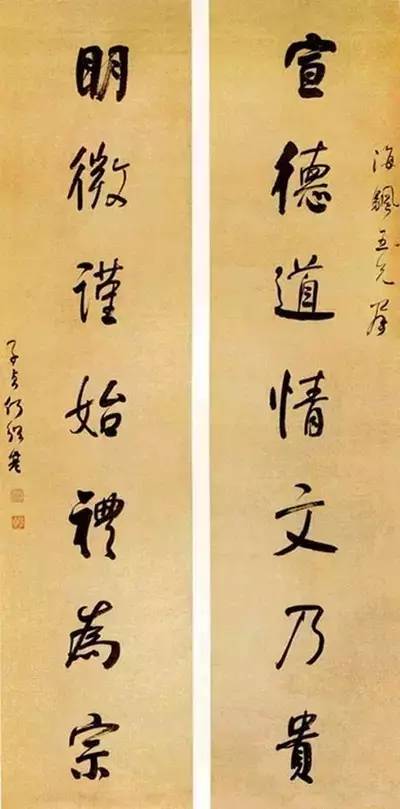 宣德道情文乃貴
海飄五兄屬
明微謹始禮為宗
子貞何紹基